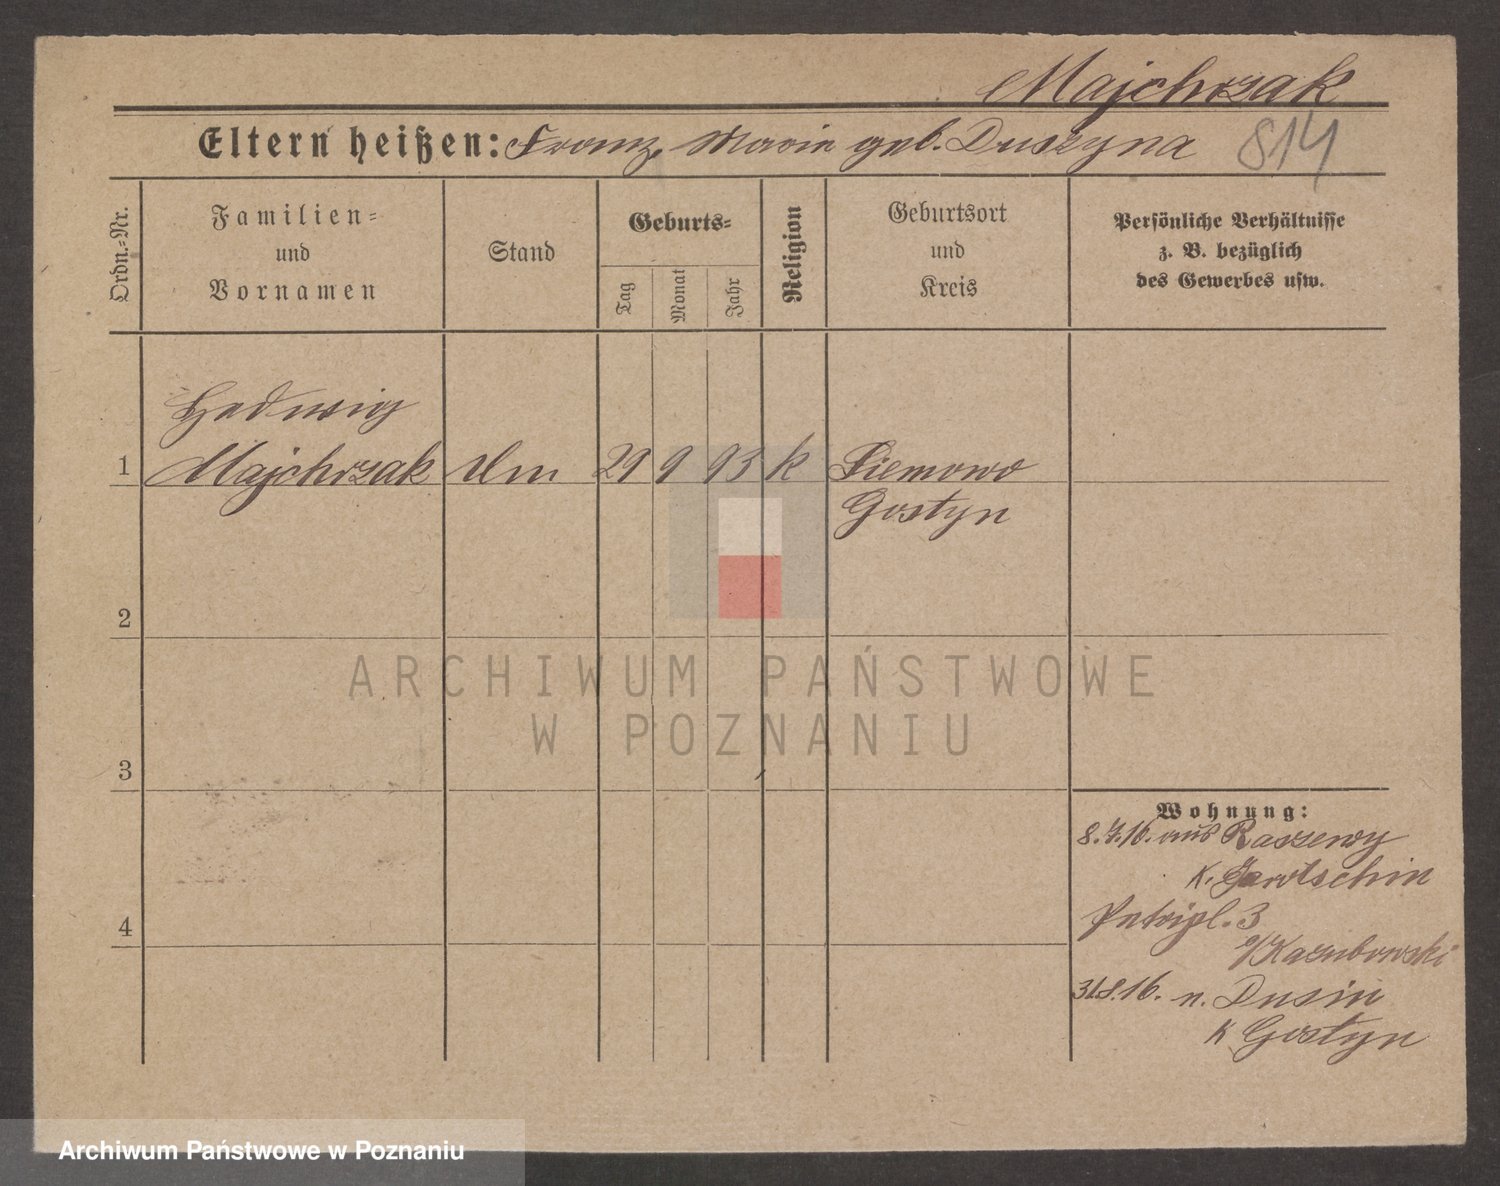 Majchrzak
Eltern heißen: Franz, Marie geb. Duszyna 814
Ordn.-Nr.
Familien-
und
Vornamen
Stand
Geburts-
Tag
Monat
Jahr
Religion
Geburtsort
und
Kreis
Persönliche Verhältnisse
z. B. bezüglich
des Gewerbes usw.
Hedwig
1 Majchrzak 29 9 93 k Siemowo
Gostyn
2
ARCHIWUM PAŃSTWOWE
W POZNANIU
3
Wohnung:
8.7.16. aus Raszewy
K. Jarotschin
4
Petripl. 3
Kazubowski
31.8.16. n. Dusin
K Gostyn
Archiwum Państwowe w Poznaniu